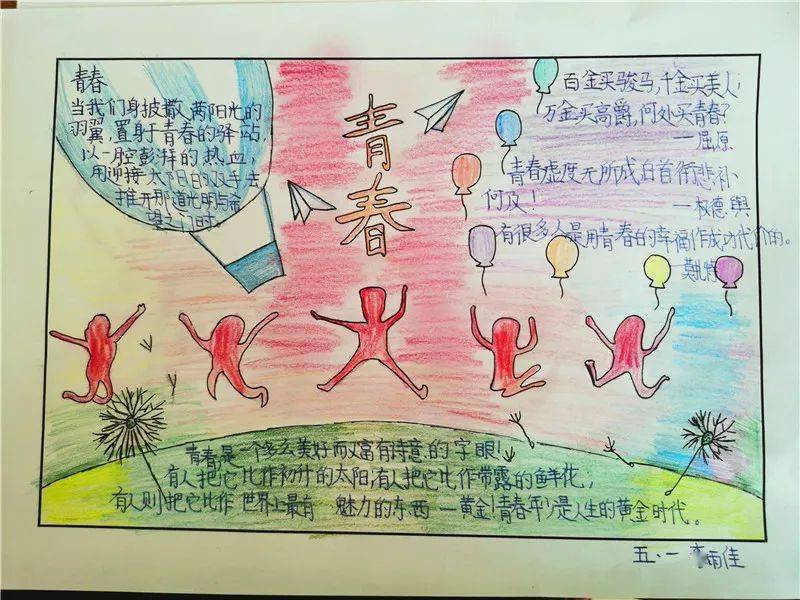 青春
当我们身披散满阳光的
羽翼,置身于青春的驿站,
以一腔彭拜的热血,
用迎接太阳的双手去
推开那道光明与希
望之门时。
青春
百金买骏马,千金买美人;
万金买高爵,何处买青春?
—屈原
青春虚度无所成,白首衔悲补
何及!
—权德舆
有很多人是用青春的幸福作成功代价的。
莫扎特
青春是一个多么美好而又富有诗意的字眼!
有人把它比作初升的太阳;有人把它比作带露的鲜花;
有人则把它比作世界上最有 魅力的东西—黄金!青春年少是人生的黄金时代。
五、一 雨佳